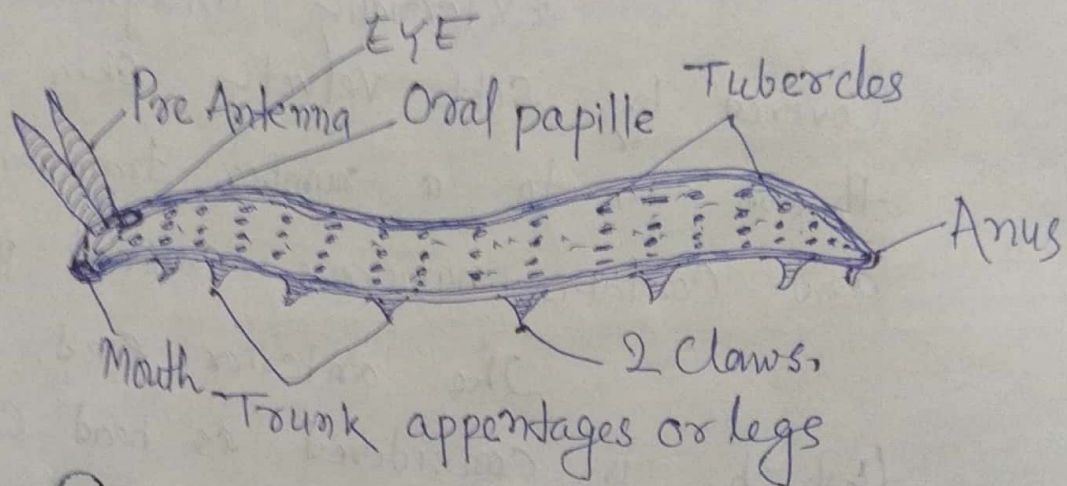 EYE
Pre Antenna
Oral papille
Tubercles
Anus
Mouth
2 Claws.
Trunk appentages or legs